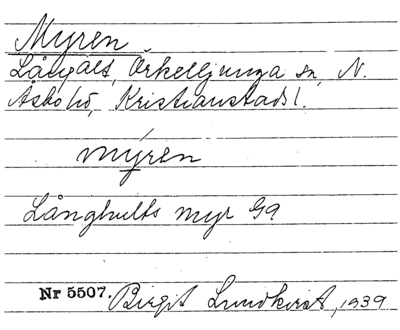 Myren
Långalt, Örkelljunga sn, N.
Åsbo hd, Kristianstads l.
mýren
Långhults myr G9
Nr 5507. Birgit Lundkvist, 1939